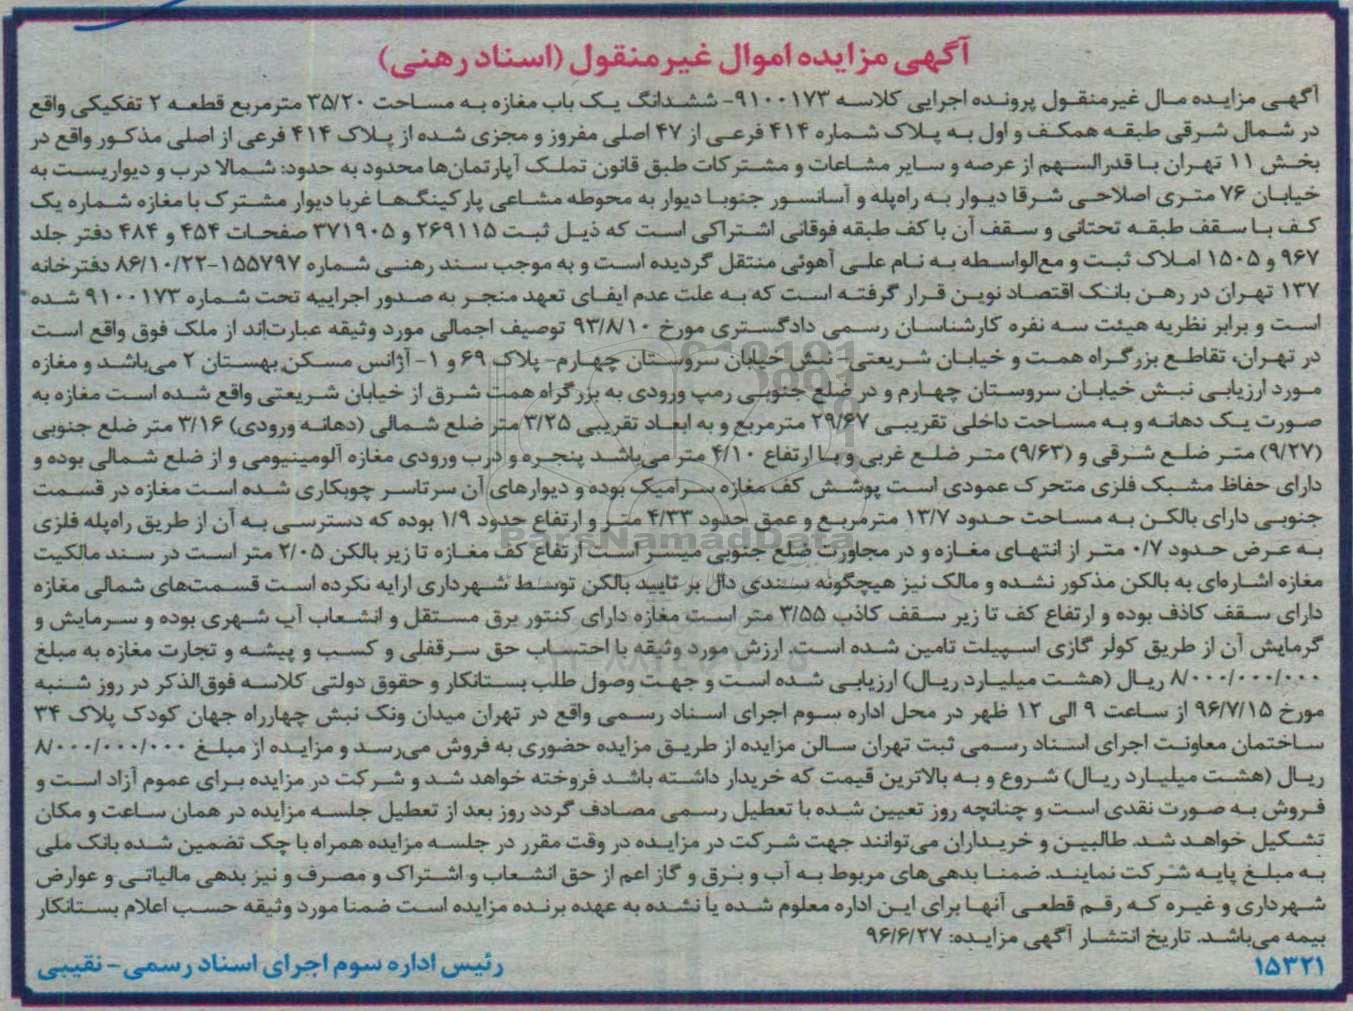 آگهی مزایده اموال غیرمنقول (اسناد رهنی)
آگهی مزایده مال غیرمنقول پرونده اجرایی کلاسه ۹۱۰۰۱۷۳- ششدانگ یک باب مغازه به مساحت ۳۵/۲۰ مترمربع قطعه ۲ تفکیکی واقع
در شمال شرقی طبقه همکف و اول به پلاک شماره ۴۱۴ فرعی از ۴۷ اصلی مفروز و مجزی شده از پلاک ۴۱۴ فرعی از اصلی مذکور واقع در
بخش ۱۱ تهران با قدرالسهم از عرصه و سایر مشاعات و مشترکات طبق قانون تملک آپارتمان‌ها محدود به حدود: شمالا درب و دیواریست به
خیابان ۷۶ متری اصلاحی شرقا دیوار به راه‌پله و آسانسور جنوبا دیوار به محوطه مشاعی پارکینگ‌ها غربا دیوار مشترک با مغازه شماره یک
کف با سقف طبقه تحتانی و سقف آن با کف طبقه فوقانی اشتراکی است که ذیل ثبت ۲۶۹۱۱۵ و ۳۷۱۹۰۵ صفحات ۴۵۴ و ۴۸۴ دفتر جلد
۹۶۷ و ۱۵۰۵ املاک ثبت و مع‌الواسطه به نام علی آهوئی منتقل گردیده است و به موجب سند رهنی شماره ۱۵۵۷۹۷-۸۶/۱۰/۲۲ دفترخانه
۱۳۷ تهران در رهن بانک اقتصاد نوین قرار گرفته است که به علت عدم ایفای تعهد منجر به صدور اجراییه تحت شماره ۹۱۰۰۱۷۳ شده
است و برابر نظریه هیئت سه نفره کارشناسان رسمی دادگستری مورخ ۹۳/۸/۱۰ توصیف اجمالی مورد وثیقه عبارت‌اند از ملک فوق واقع است
در تهران، تقاطع بزرگراه همت و خیابان شریعتی- نبش خیابان سروستان چهارم- پلاک ۶۹ و ۱- آژانس مسکن بهستان ۲ می‌باشد و مغازه
مورد ارزیابی نبش خیابان سروستان چهارم و در ضلع جنوبی رمپ ورودی به بزرگراه همت شرق از خیابان شریعتی واقع شده است مغازه به
صورت یک دهانه و به مساحت داخلی تقریبی ۲۹/۶۷ مترمربع و به ابعاد تقریبی ۳/۲۵ متر ضلع شمالی (دهانه ورودی) ۳/۱۶ متر ضلع جنوبی
(۹/۲۷) متر ضلع شرقی و (۹/۶۳) متر ضلع غربی و با ارتفاع ۴/۱۰ متر می‌باشد پنجره و درب ورودی مغازه آلومینیومی و از ضلع شمالی بوده و
دارای حفاظ مشبک فلزی متحرک عمودی است پوشش کف مغازه سرامیک بوده و دیوارهای آن سرتاسر چوبکاری شده است مغازه در قسمت
جنوبی دارای بالکن به مساحت حدود ۱۳/۷ مترمربع و عمق حدود ۴/۳۳ متر و ارتفاع حدود ۱/۹ بوده که دسترسی به آن از طریق راه‌پله فلزی
به عرض حدود ۰/۷ متر از انتهای مغازه و در مجاورت ضلع جنوبی میسر است ارتفاع کف مغازه تا زیر بالکن ۲/۰۵ متر است در سند مالکیت
مغازه اشاره‌ای به بالکن مذکور نشده و مالک نیز هیچگونه سندی دال بر تایید بالکن توسط شهرداری ارایه نکرده است قسمت‌های شمالی مغازه
دارای سقف کاذف بوده و ارتفاع کف تا زیر سقف کاذب ۳/۵۵ متر است مغازه دارای کنتور برق مستقل و انشعاب آب شهری بوده و سرمایش و
گرمایش آن از طریق کولر گازی اسپیلت تامین شده است. ارزش مورد وثیقه با احتساب حق سرقفلی و کسب و پیشه و تجارت مغازه به مبلغ
۸/۰۰۰/۰۰۰/۰۰۰ ریال (هشت میلیارد ریال) ارزیابی شده است و جهت وصول طلب بستانکار و حقوق دولتی کلاسه فوق‌الذکر در روز شنبه
مورخ ۹۶/۷/۱۵ از ساعت ۹ الی ۱۲ ظهر در محل اداره سوم اجرای اسناد رسمی واقع در تهران میدان ونک نبش چهارراه جهان کودک پلاک ۳۴
ساختمان معاونت اجرای اسناد رسمی ثبت تهران سالن مزایده از طریق مزایده حضوری به فروش می‌رسد و مزایده از مبلغ ۸/۰۰۰/۰۰۰/۰۰۰
ریال (هشت میلیارد ریال) شروع و به بالاترین قیمت که خریدار داشته باشد فروخته خواهد شد و شرکت در مزایده برای عموم آزاد است و
فروش به صورت نقدی است و چنانچه روز تعیین شده با تعطیل رسمی مصادف گردد روز بعد از تعطیل جلسه مزایده در همان ساعت و مکان
تشکیل خواهد شد. طالبین و خریداران می‌توانند جهت شرکت در مزایده در وقت مقرر در جلسه مزایده همراه با چک تضمین شده بانک ملی
به مبلغ پایه شرکت نمایند. ضمنا بدهی‌های مربوط به آب و برق و گاز اعم از حق انشعاب و اشتراک و مصرف و نیز بدهی مالیاتی و عوارض
شهرداری و غیره که رقم قطعی آنها برای این اداره معلوم شده یا نشده به عهده برنده مزایده است ضمنا مورد وثیقه حسب اعلام بستانکار
بیمه می‌باشد. تاریخ انتشار آگهی مزایده: ۹۶/۶/۲۷
۱۵۳۲۱
رئیس اداره سوم اجرای اسناد رسمی - نقیبی
ParsNamadData